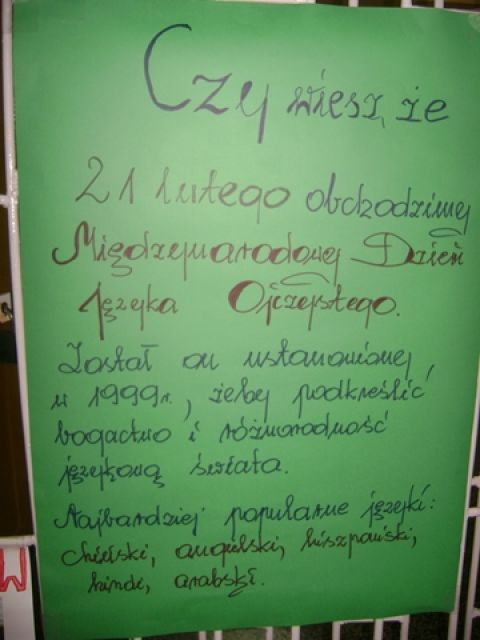 Czy wiesz, że
21 lutego obchodzimy
Międzynarodowy Dzień
Języka Ojczystego.
Został on ustanowiony
w 1999r., żeby podkreślić
bogactwo i różnorodność
językową świata.
Najbardziej popularne języki:
chiński, angielski, hiszpański,
hindi, arabski.
W